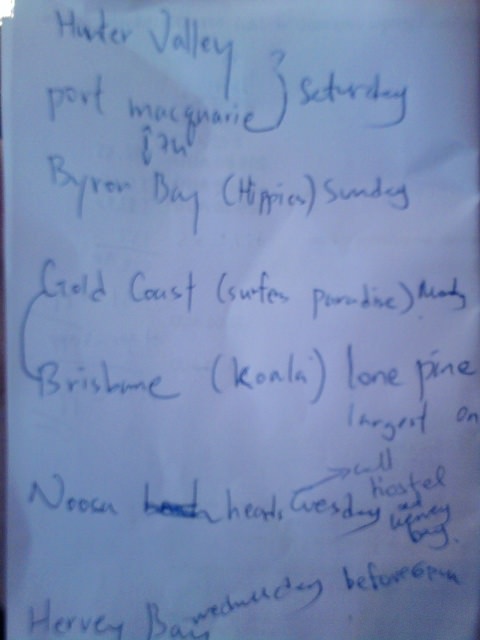 Hunter Valley
port macquarie } Saturday
Byron Bay (Hippies) Sunday
Gold Coast (surfes paradise)
Brisbane (koala) lone pine
largest on
call
Noosa heads Tuesday hostel
Hervey Bay wednesday before 6pm